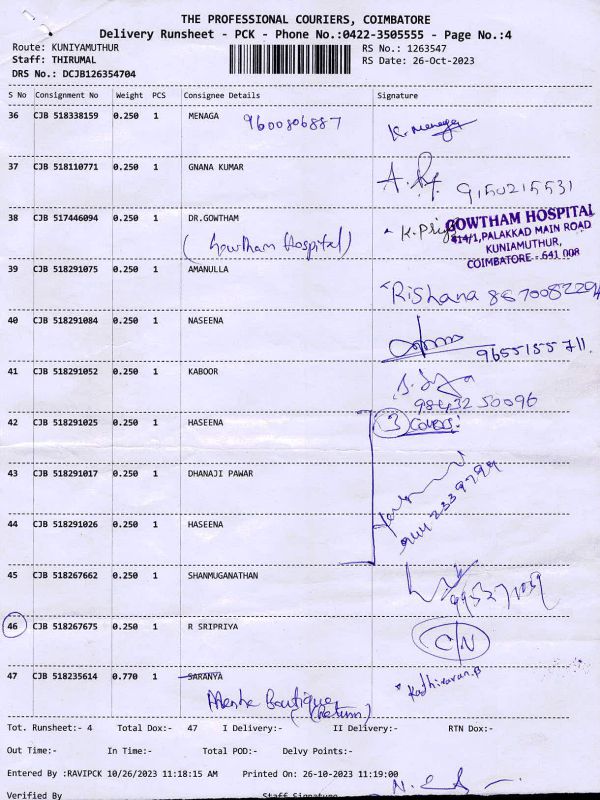 THE PROFESSIONAL COURIERS, COIMBATORE
Delivery Runsheet - PCK - Phone No.:0422-3505555 - Page No.:4
Route: KUNIYAMUTHUR
RS No.: 1263547
Staff: THIRUMAL
RS Date: 26-Oct-2023
DRS No.: DCJB126354704
S No Consignment No Weight PCS Consignee Details Signature
36 CJB 518338159 0.250 1 MENAGA 9600806887 K. Menaga
37 CJB 518110771 0.250 1 GNANA KUMAR 9150215531
38 CJB 517446094 0.250 1 DR.GOWTHAM K. Priya
(Gowtham Hospital)
GOWTHAM HOSPITAL
414/1, PALAKKAD MAIN ROAD
KUNIAMUTHUR,
COIMBATORE - 641 008
39 CJB 518291075 0.250 1 AMANULLA Rishana 8870082294
40 CJB 518291084 0.250 1 NASEENA 9655155711
41 CJB 518291052 0.250 1 KABOOR
9843250096
42 CJB 518291025 0.250 1 HASEENA 3 covers:
43 CJB 518291017 0.250 1 DHANAJI PAWAR
44 CJB 518291026 0.250 1 HASEENA
45 CJB 518267662 0.250 1 SHANMUGANATHAN
46 CJB 518267675 0.250 1 R SRIPRIYA C/N
47 CJB 518235614 0.770 1 SARANYA Kathiravan.B
Boutique
(Return)
Tot. Runsheet:- 4 Total Dox:- 47 I Delivery:- II Delivery:- RTN Dox:-
Out Time:- In Time:- Total POD:- Delvy Points:-
Entered By :RAVIPCK 10/26/2023 11:18:15 AM Printed On: 26-10-2023 11:19:00
Verified By Staff Signature